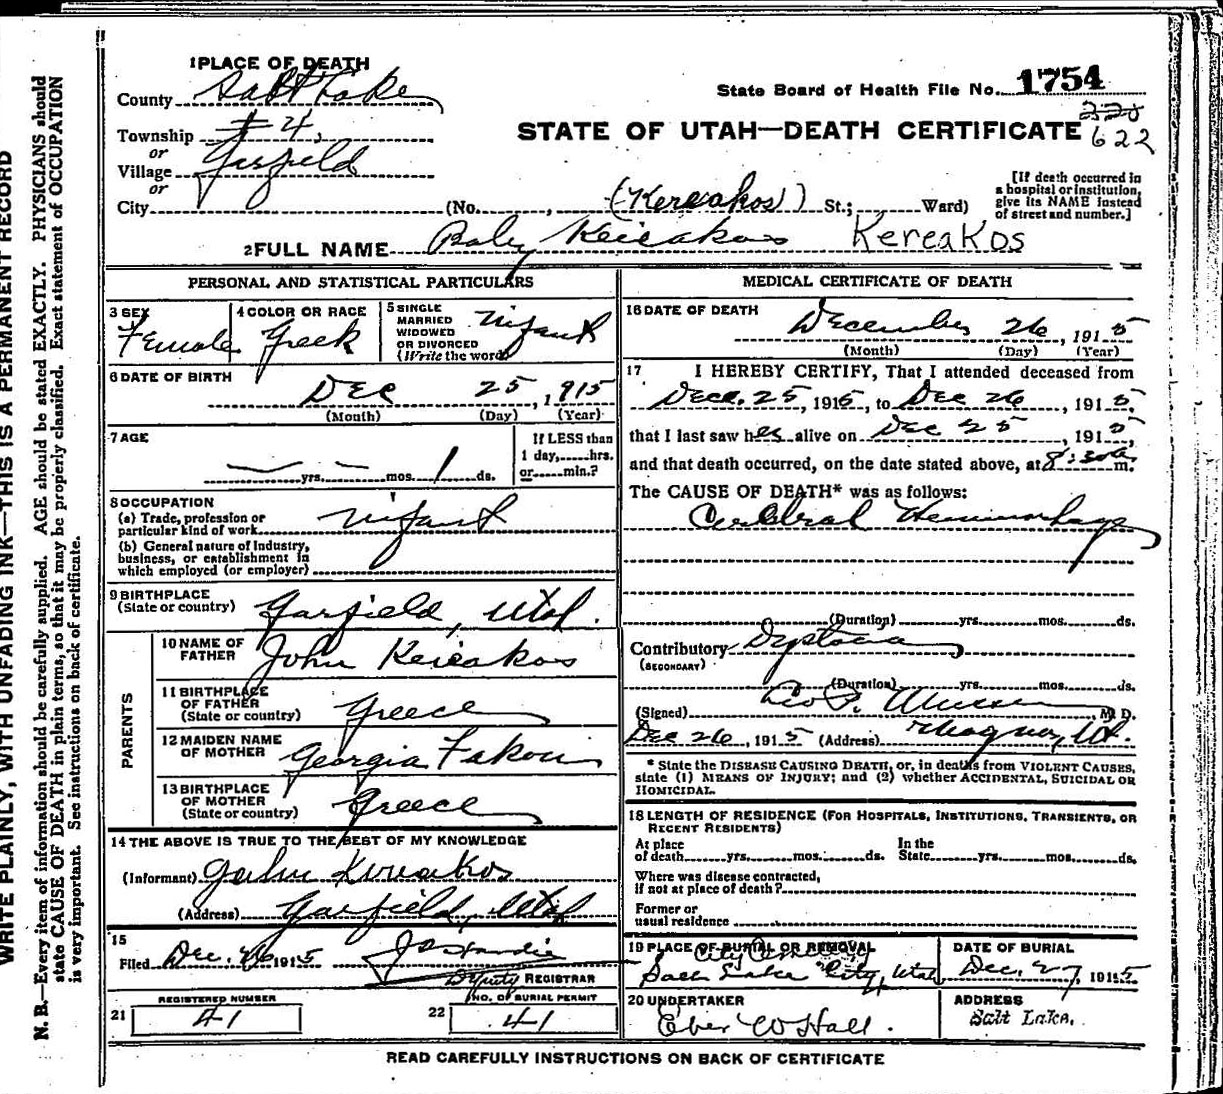 WRITE PLAINLY, WITH UNFADING INK—THIS IS A PERMANENT RECORD
N. B.—Every item of information should be carefully supplied. AGE should be stated EXACTLY. PHYSICIANS should
state CAUSE OF DEATH in plain terms, so that it may be properly classified. Exact statement of OCCUPATION
is very important. See instructions on back of certificate.
1 PLACE OF DEATH
County Salt Lake
Township #4,
or
Village Garfield
or
City (No. , (Kereakos) St.; Ward)
State Board of Health File No. 1754
220
622
STATE OF UTAH—DEATH CERTIFICATE
[If death occurred in
a hospital or institution,
give its NAME instead
of street and number.]
2 FULL NAME Baby Keieakos Kereakos
PERSONAL AND STATISTICAL PARTICULARS
3 SEX
Female
4 COLOR OR RACE
Greek
5 SINGLE
MARRIED
WIDOWED
OR DIVORCED
(Write the word)
Infant
6 DATE OF BIRTH
Dec 25, 1915
(Month) (Day) (Year)
7 AGE
yrs. mos. 1 ds.
If LESS than
1 day, hrs.
or min.?
8 OCCUPATION
(a) Trade, profession or
particular kind of work Infant
(b) General nature of Industry,
business, or establishment in
which employed (or employer)
9 BIRTHPLACE
(State or country) Garfield, Utah.
PARENTS
10 NAME OF
FATHER John Keieakos
11 BIRTHPLACE
OF FATHER
(State or country) Greece
12 MAIDEN NAME
OF MOTHER Georgia Fakoui
13 BIRTHPLACE
OF MOTHER
(State or country) Greece
14 THE ABOVE IS TRUE TO THE BEST OF MY KNOWLEDGE
(Informant) John Kireakos
(Address) Garfield, Utah
15
Filed Dec. 26 1915
Deputy REGISTRAR
21
REGISTERED NUMBER
41
22
NO. OF BURIAL PERMIT
41
MEDICAL CERTIFICATE OF DEATH
16 DATE OF DEATH
December 26, 1915
(Month) (Day) (Year)
17 I HEREBY CERTIFY, That I attended deceased from
Dec. 25, 1915, to Dec 26, 1915,
that I last saw her alive on Dec 25, 1915,
and that death occurred, on the date stated above, at 8:30a m.
The CAUSE OF DEATH* was as follows:
Cerebral Hemorrhage
(Duration) yrs. mos. ds.
Contributory Dystocia
(SECONDARY)
(Duration) yrs. mos. ds.
(Signed) Leo P. M. D.
Dec 26, 1915 (Address) Magna, Ut.
* State the DISEASE CAUSING DEATH, or, in deaths from VIOLENT CAUSES,
state (1) MEANS OF INJURY; and (2) whether ACCIDENTAL, SUICIDAL OR
HOMICIDAL.
18 LENGTH OF RESIDENCE (FOR HOSPITALS, INSTITUTIONS, TRANSIENTS, OR
RECENT RESIDENTS)
At place
of death yrs. mos. ds.
In the
State yrs. mos. ds.
Where was disease contracted,
if not at place of death?
Former or
usual residence
19 PLACE OF BURIAL OR REMOVAL
City Cemetery
Salt Lake City, Utah
DATE OF BURIAL
Dec. 27, 1915
20 UNDERTAKER
Eber W Hall.
ADDRESS
Salt Lake.
READ CAREFULLY INSTRUCTIONS ON BACK OF CERTIFICATE